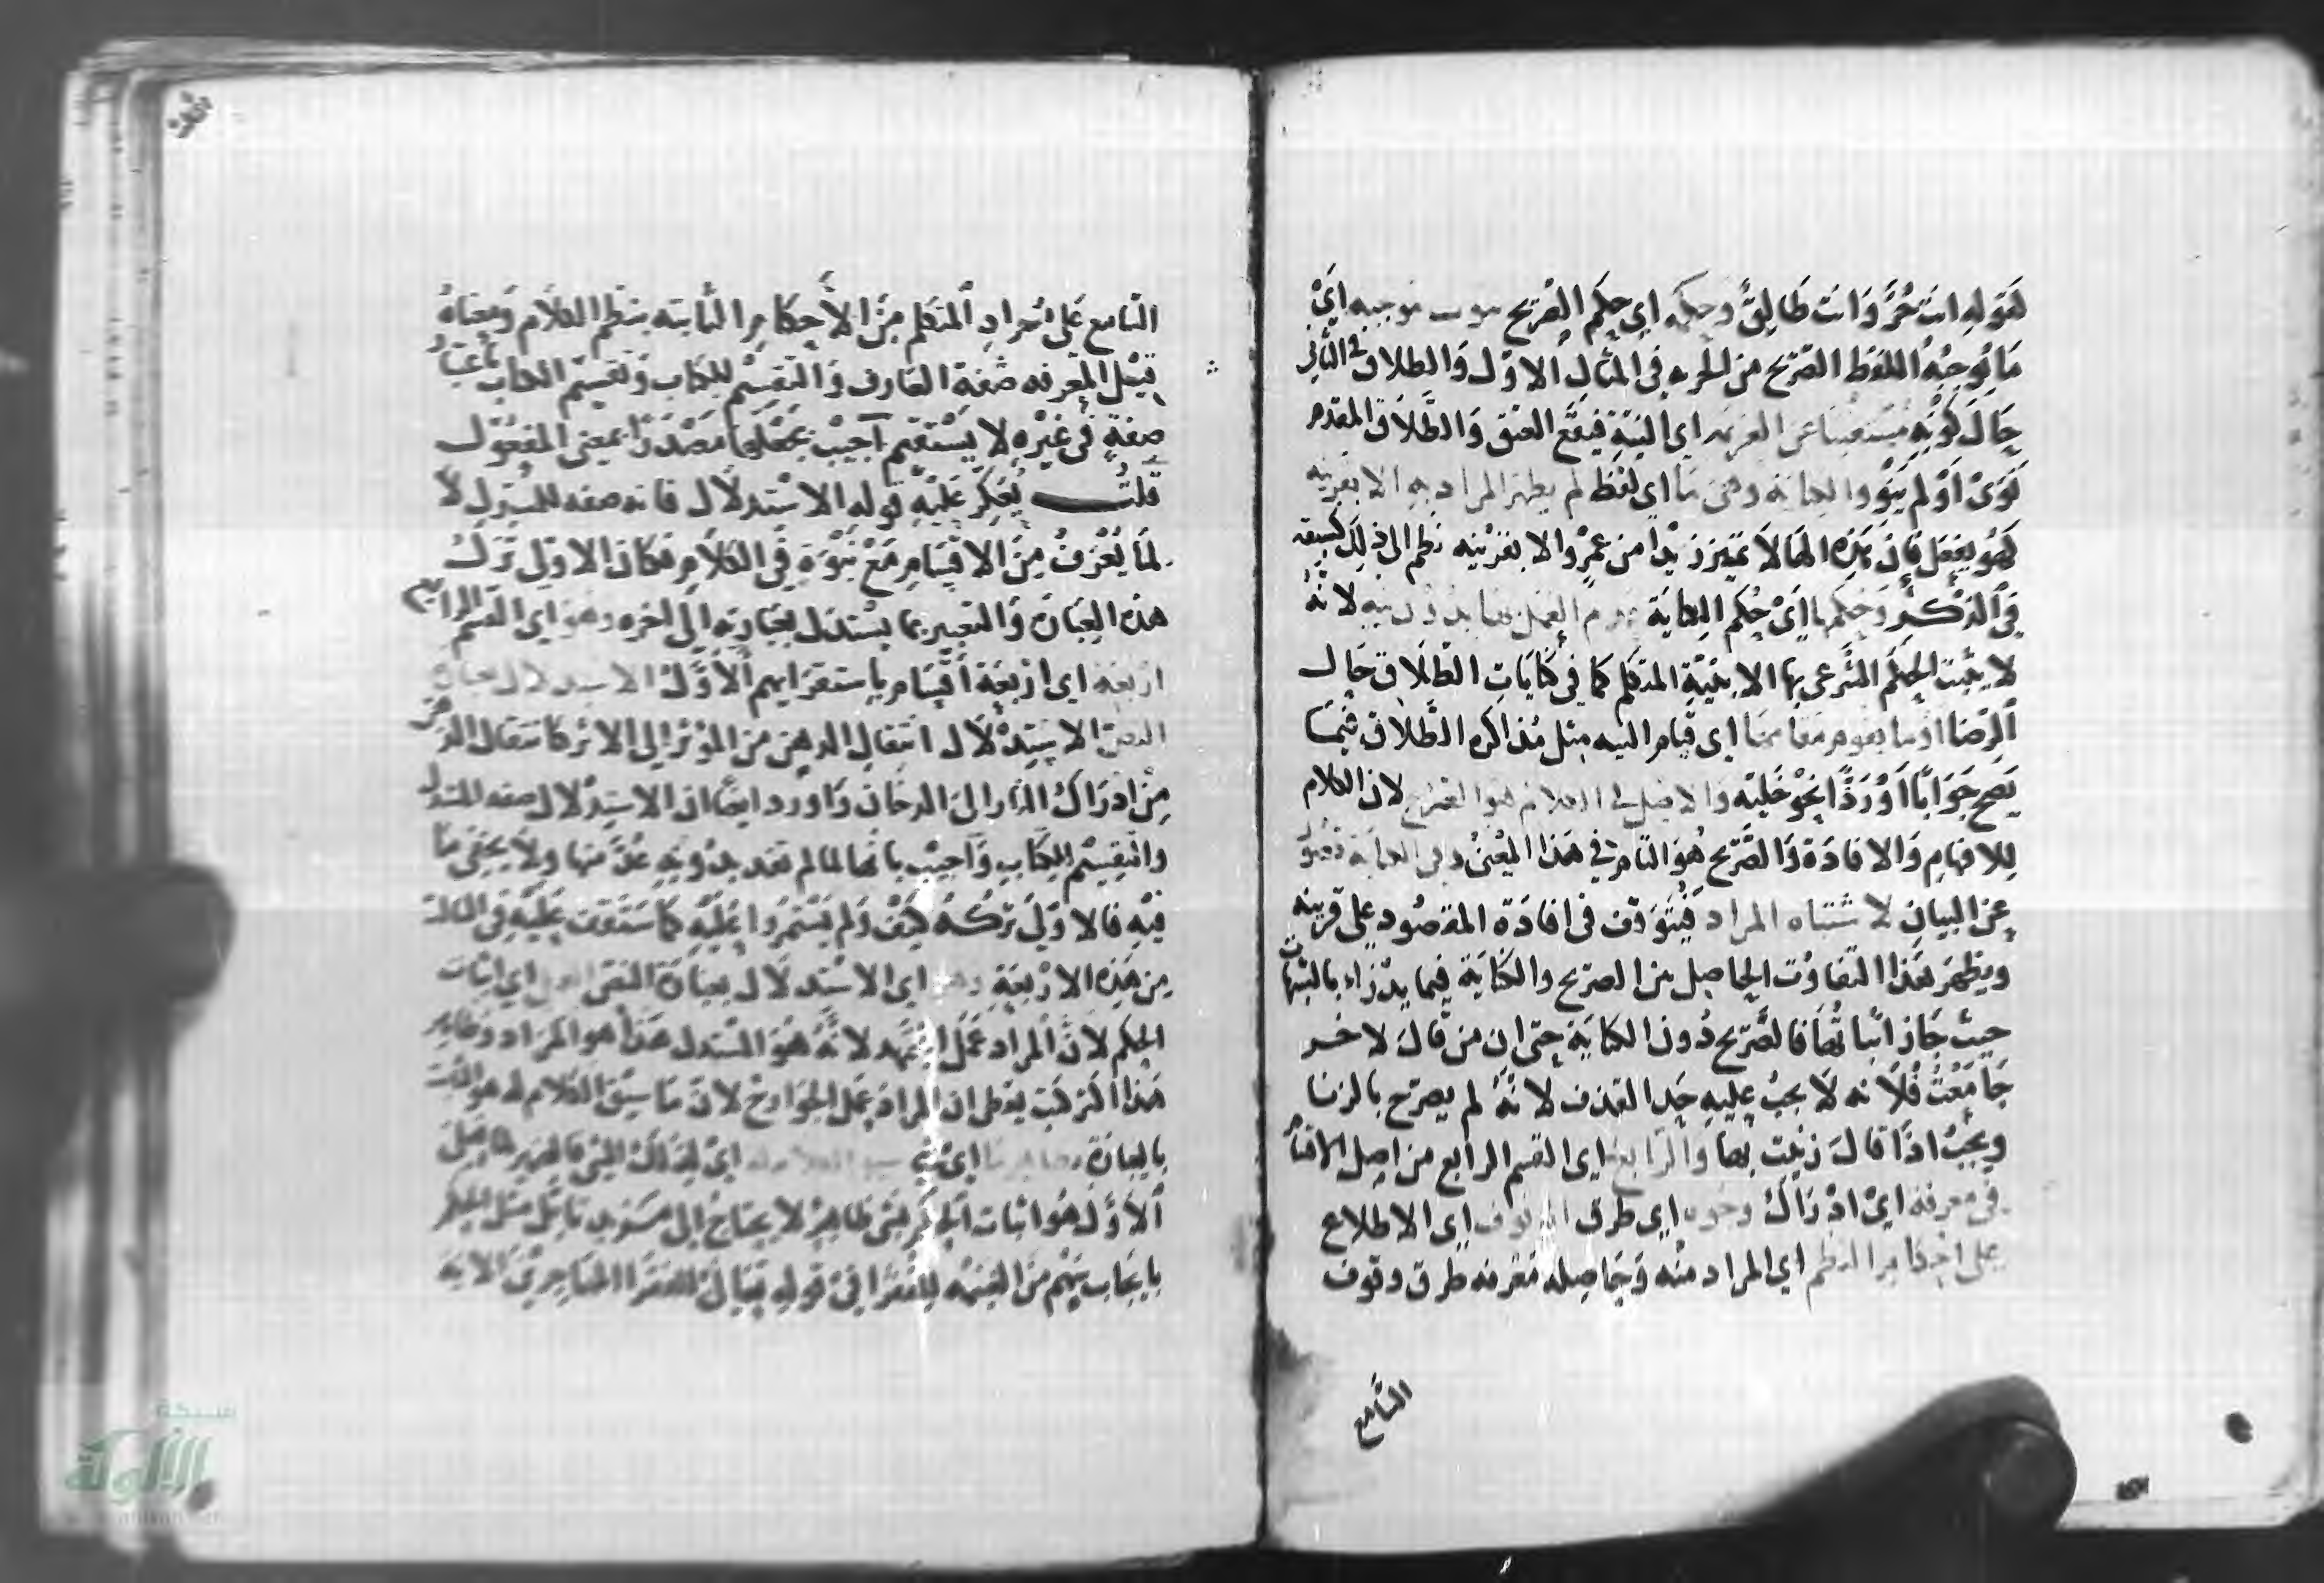 كقوله انت حُرّ وَانت طَالِقٌ وحكمه اي حكم الصّريح ثبوت موجبه ايْ
مَا يُوجِبُهُ اللفظ الصّريح من الحريه في المثال الاوّل وَالطلاق في الثّاني
حَالَ كَوْنِهِ مُسْتغنيًا عن العزيمه اي النيّة فيقَع العتق وَالطّلَاق المقدم
نَوَىْ اَوْ لم يَنْو والكناية وهى مَا اي لفظ لم يظهر المراد به الا بقرينه
كهُو يفعَل فان هَذِه الهَا لَا تميّز زيْدًا من عمرٍو الا بقرْينه نظم الى ذلِكَ سبقه
في الذكْرِ وَحُكمها اَيْ حُكم الكِنايَة عدم العَمَل بها بدون نيه لانهُ
لا يثبت الحكم الشّرعي بها الا بنيّةِ المتكلم كما في كنَايَاتِ الطّلَاق حَال
الرّضا او ما يقوم مقامهَا اي قيام النيه مثل مُذاكره الطّلاق فيمَا
يَصح جَوَابًا اَوْ رَدًّا نحوْ خَليّه وَالاصل في الكلام هوَ الصّريح لان الكلام
لِلافهامِ وَالافادَة وَالصَّريح هُو التام في هَذا المعْنىٰ وفي الكنايَة قصُور
عن البيان لاشتباه المراد فَيتَوَقف في افادَة المقصُود على قرينه
ويظهَر هَذا التفاوُت الحاصِل من الصريح والكِنَايَة فيما يدْرَاء بالشبهات
حيث جَاز اثباتُهَا بالصَّريح دُون الكنايَة حتى ان من قَالَ لاخر
جَامَعْتَ فُلَانه لَا يجبُ عليه حَد القذف لانهُ لم يصرّح بالزنا
ويجبُ اذا قالَ زنيْت بها وَالرّابع اي القسم الرابع من اصل الاقسام
في معرفة ايْ ادْراك وجوه اي طرق الوقوف اي الاطلاع
على احكام النظم اي المراد منْه وَحَاصِله مَعْرفه طرق وقوف
السَّامع
السّامع عَلى مُراد المتكلم مِنَ الاَحكامِ الثابته بنظم الكلام وَمعناهُ
قيْل المعرفه صفة العَارف وَالتقسيْم للكتاب وَتقسيم الكتاب باعتبار
صفةٍ في غيْرِهِ لا يَسْتقيم اجيْب بجعْلِهَا مَصْدرًا بمعنى المفعُول
قلتُ يُعَكرُ عَليْهِ قوله الاستدلَال فانه صفه للمستدِل لا
لمَا يُعْرَفُ مِنَ الاقسَام مَعْ نبْوَةٍ في الكلَام فكان الاولى تَرك
هذه العِبَارَة وَالتعبير بما يستدَل بعبَارته الى اخره وهو اي القسم الرابع
اربَعة اي ارْبعَة اَقسَام باستقرَايهم الاَوّلُ الاستدلال بعبارة
النصّ الاستدْلَال انتقال الذهن من المؤثر الى الاثر كانتقال الذهن
مِنْ ادرَاك النّار الى الدخان وَاورد ايضًا ان الاستدلال صفه المستدِل
والتقسيْم للكتابِ وَاجيْب بانها لما لم تفد بدُونِهِ عُدَّ منها ولَا يخفى مَا
فيْهِ فالاوْلىَ تركُهُ كيف وَلم يَستمرُوا عَليْه كما ستقف عَليْه في الثالث
مِن هَذِه الارْبعَةِ وهو اي الاستدلَال بعبَارَة النصّ العمل اي اثبات
الحكم لاَنّ المراد عَمَل المجتهد لانّهُ هُوَ المستدِل هَذا هوَ المرَاد وظاهر
هَذا التركيب يعطى ان المرادَ عَمل الجوَارح لانّ مَا سيْق الكلام له هوَ الثابت
بالعبارَة بظاهر مَا اي شيء سيق الكلام له ايْ لِذلكَ الشيْ فالعمل
الاوّل هُو اثبات الحكم بشيْ ظاهِرٍ لا يحتاج الى مَزيد تامّل مثل الحكم
بايجَاب سَهم مِنَ الغنيمه للفقَرا في قوله تعَالى للفقرَا المهَاجرين الاية